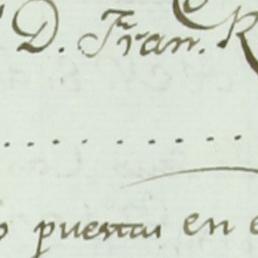 D. Fran.
. . . . . . . . .
puestas en